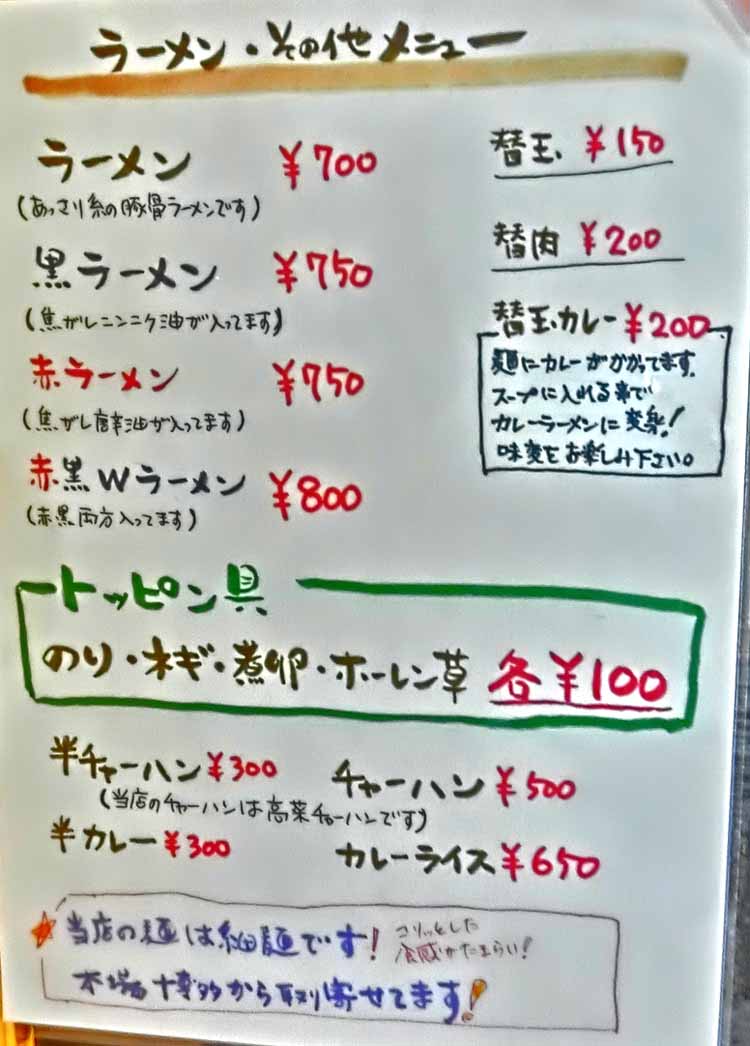 ラーメン・その他メニュー
ラーメン ¥700
(あっさり系の豚骨ラーメンです)
黒ラーメン ¥750
(焦がしニンニク油が入ってます)
赤ラーメン ¥750
(焦がし唐辛油が入ってます)
赤黒Wラーメン ¥800
(赤黒両方入ってます)
替玉 ¥150
替肉 ¥200
替玉カレー ¥200
麺にカレーがかかってます。
スープに入れる事で
カレーラーメンに変身!
味変をお楽しみ下さい。
トッピン具
のり・ネギ・煮卵・ホーレン草 各¥100
半チャーハン ¥300 チャーハン ¥500
(当店のチャーハンは高菜チャーハンです)
半カレー ¥300 カレーライス ¥650
当店の麺は細麺です! コリッとした
食感がたまらい!
本場博多から取り寄せてます!